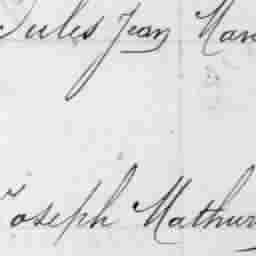 Jules Jean Mari
Joseph Mathur